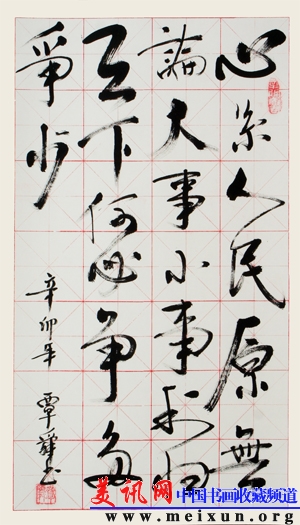 心系人民原無
論大事小事利归
天下何必争多
爭少
辛卯年 覃 书
美讯网 中国书画收藏频道
www.meixun.org